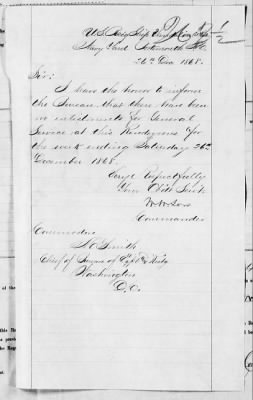 Navy Yard Portsmouth
26th Decr 1868.
Sir:
I have the honor to inform
the Bureau that there have been
no enlistments for General
Service at this Rendezvous for
the week ending Saturday 26th
December 1868.
Very Respectfully
Your Obdt Servt
Commander
Commodore
Smith
Chief of Bureau of
Washington
D.C.